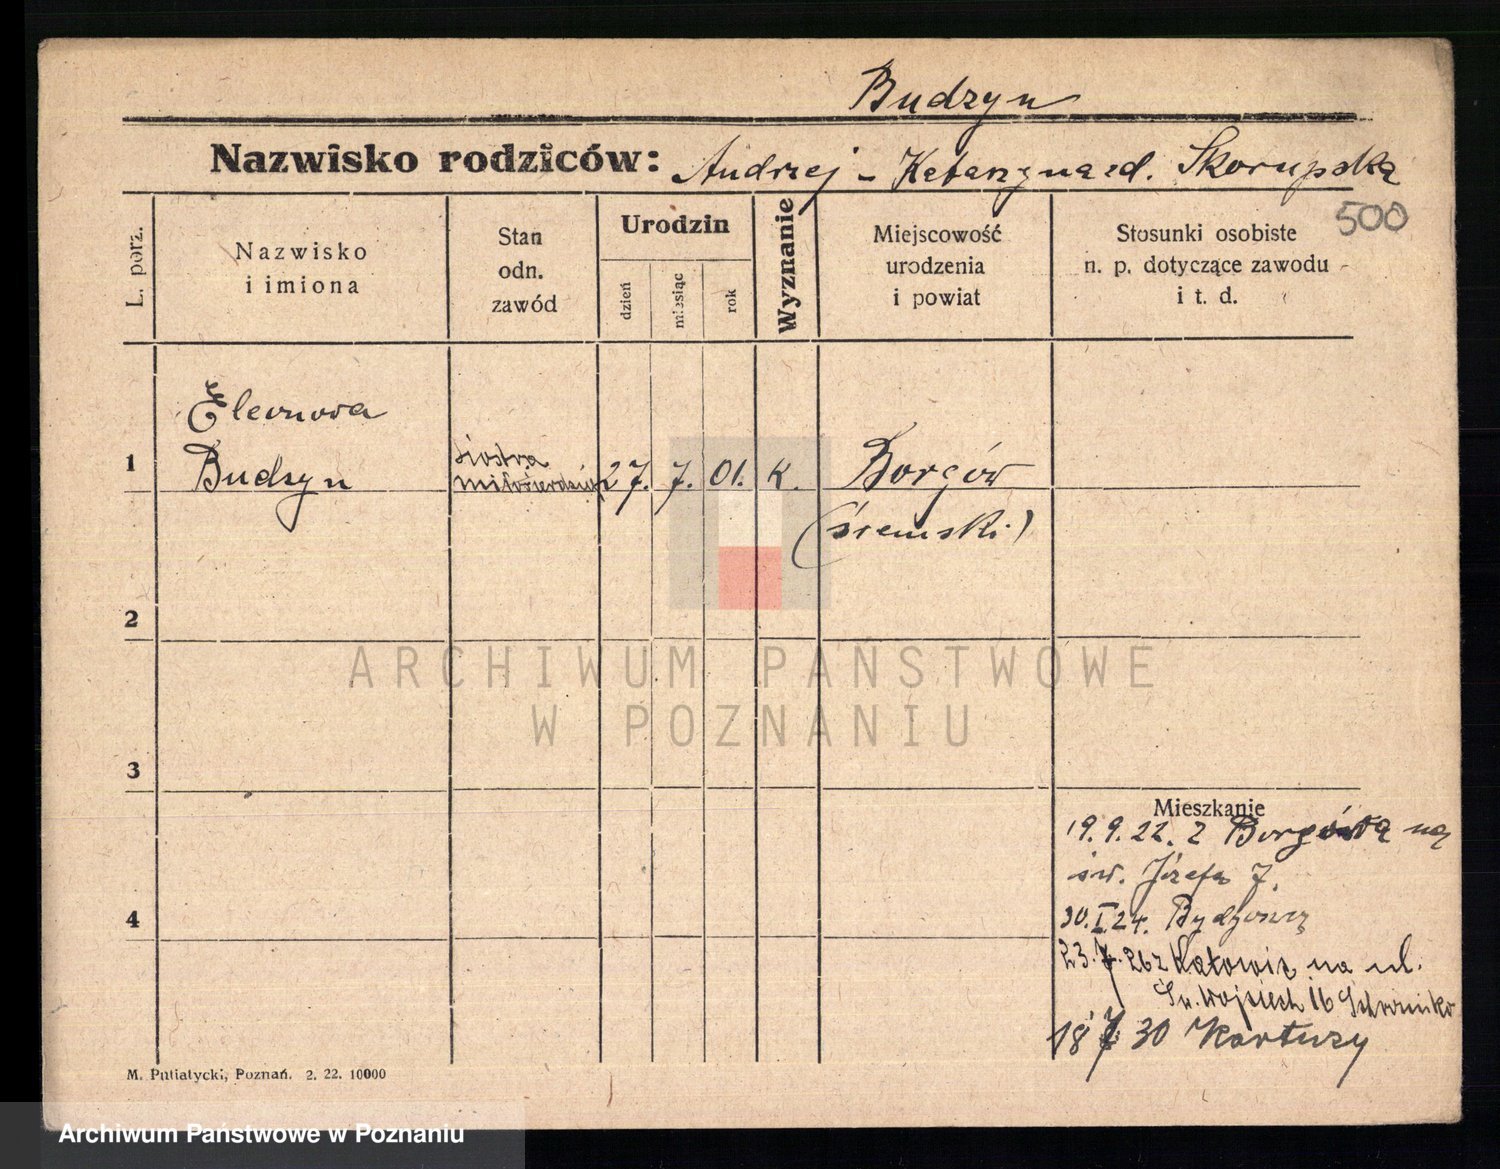 Budzyn
Nazwisko rodziców: Andrzej - Katarzyna zd. Skorupska
500
L. porz.
Nazwisko
i imiona
Stan
odn.
zawód
Urodzin
dzień
miesiąc
rok
Wyznanie
Miejscowość
urodzenia
i powiat
Stosunki osobiste
n. p. dotyczące zawodu
i t. d.
Eleonora
1 Budzyn siostra miłosierdzia 27. 7. 01. K. Borgów
(śremski)
2
ARCHIWUM PAŃSTWOWE
W POZNANIU
3
Mieszkanie
19.9.22. z Borgówa na
św. Józefa 7.
4
30.I.24. Bydgoszcz
23.7.26 z Katowic na ul.
Św. Wojciech 16
18 7 30 Kartuzy
M. Putiatycki, Poznań. 2. 22. 10000
Archiwum Państwowe w Poznaniu